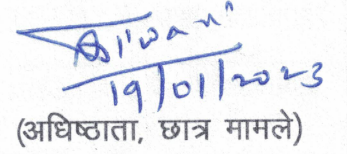 19/01/2023
(अधिष्ठाता, छात्र मामले)